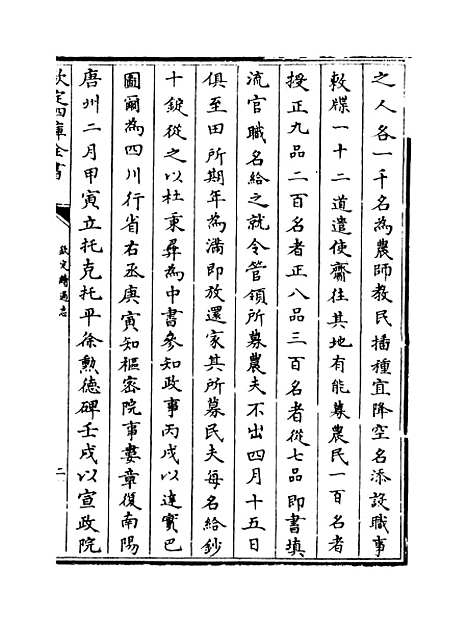 之人各一千名為農師教民播種宜降空名添設職事
敕牒一十二道遣使齎往其地有能募農民一百名者
授正九品二百名者正八品三百名者從七品即書填
流官職名給之就令管領所募農夫不出四月十五日
俱至田所期年為滿即放還家其所募民夫每名給鈔
十錠從之以杜秉彝為中書參知政事丙戌以達寳巴
圖爾為四川行省右丞庚寅知樞密院事婁章復南陽
唐州二月甲寅立托克托平徐勲德碑壬戌以宣政院
欽定四庫全書
欽定續通志
二